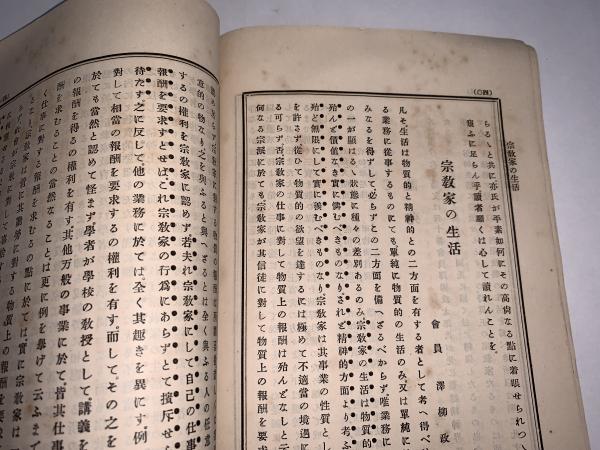 (四〇)
宗敎家の生活
らるゝと共に亦氏が平素如何にその高尙なる點に着眼せられつゝ
窺ふに足らん乎讀者願くは心して讀れんことを。
宗敎家の生活
會員 澤柳政
凡そ生活は物質的と精神的との二方面を有する者として考へ得べ
る業務に從事するものにても單純に物質的の生活のみ又は單純に
みなるを得ずして必らずこの二方面を備へざるべからず唯業務に
の一が顯はるゝ狀態に種々の差別あるのみ宗敎家の生活は物質的
殆んど價値なき實に憐むべきものなりされど精神的方面より考ふ
殆ど無限にして實に羨むべきものなり宗敎家は其事業の性質とし
を許さず從ひて物質的の欲望を達するには極めて不適當の境遇に
る可らず吾宗敎家の仕事に對して物質上の報酬は殆んどなしと云
何なる宗派に於ても宗敎家が其信徒に對して物質上の報酬を要求
意的の物なり之を與ふると與へざるとは全く與ふる人の任意
するの權利を宗敎家に認めず若夫れ宗敎家にして自己の仕事
報酬を要求すとせばこれ宗敎家の行爲にあらずとて擯斥せら
待たず。之に反して他の業務に於ては全く其趣きを異にす。例
對して相當の報酬を要求するの權利を有す。而して、その之を
於ても當然と認めて怪まず學者が學校の敎授として、講義を
の報酬を得るの權利を有す其他万般の事業に於て皆其仕事
酬を求むることの當然なることは更に例を擧げて云ふまで
く仕事に對する報酬を求むるの點に於ては、實に宗敎家は